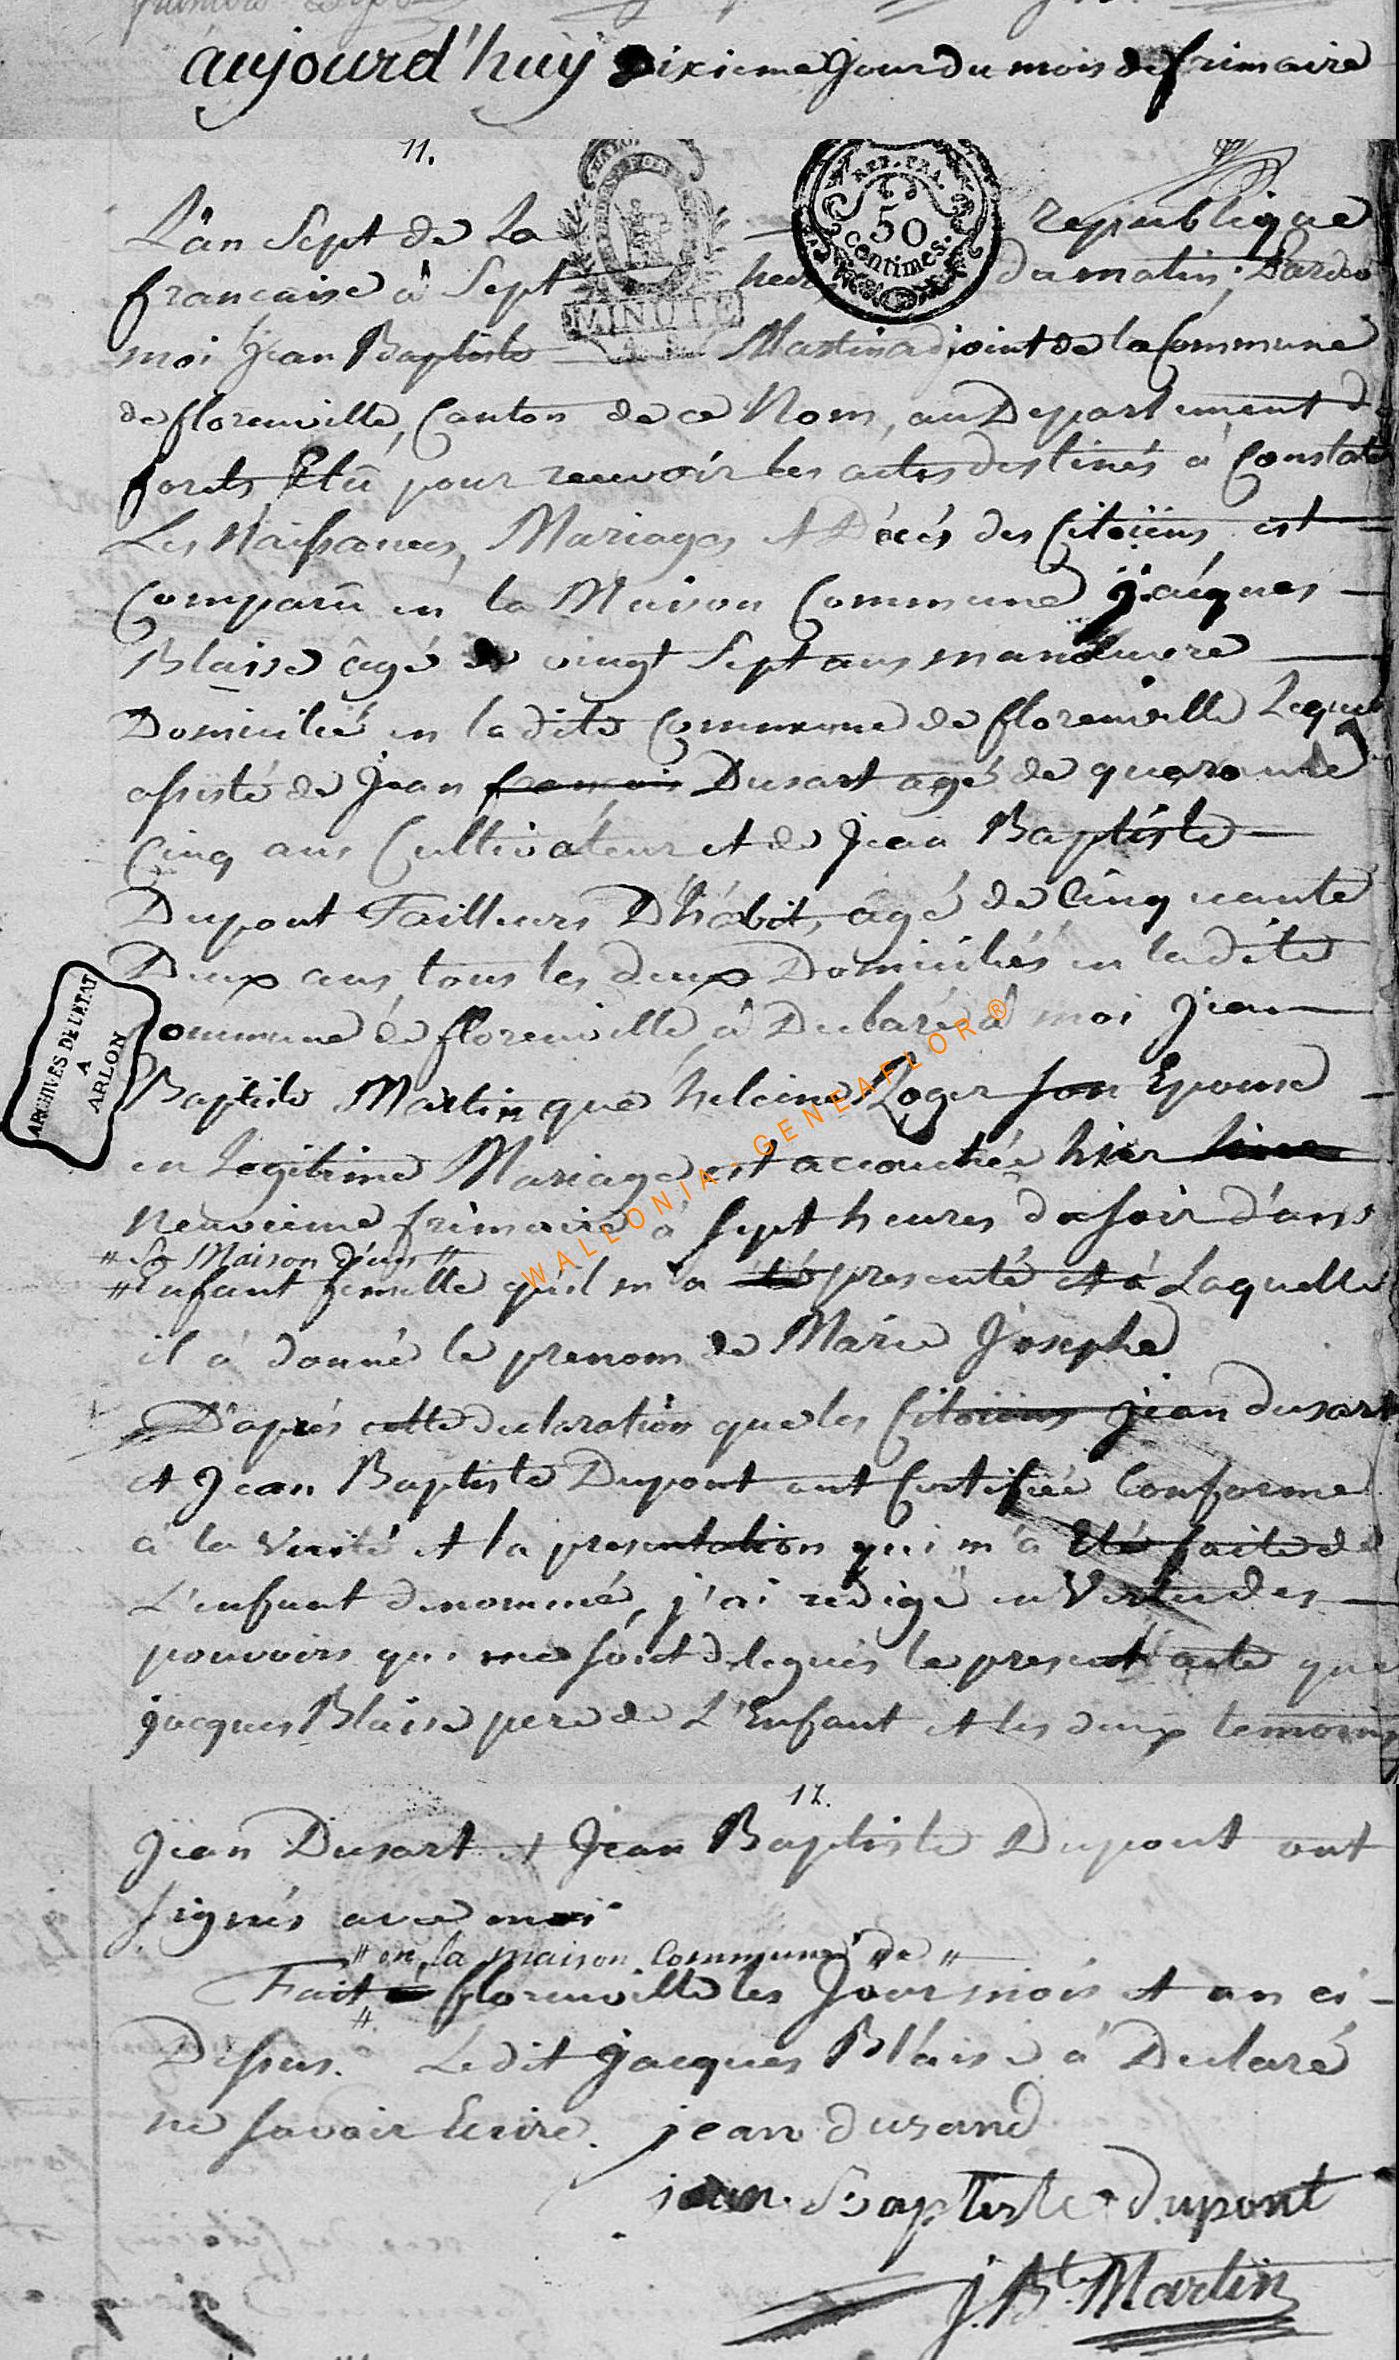 aujourd'huÿ Dixieme Jour du mois de frimaire
11.
L'an Sept de La republique
REP. FRA.
50
centimes.
francaise à Sept heures du matin; Pardev
MINUTE
moi Jean Baptiste Martin adjoint de la Commune
de florenville, Canton de ce Nom, au Departement de
forets Elû pour recevoir les actes destinés à Constater
Les Naissances, Mariages et Décés des Citoïens est
Comparû en la Maison Commune jacques
Blaise âgé de vingt Sept ans manœuvre
Domicilié en la dite Commune de florenville Lequel
assisté de Jean francois Dusart agé de quarante
Cinq ans Cultivateur et de Jean Baptiste
Dupont Tailleurs D'habit, âgé de Cinquante
Deux ans tous les deux Domiciliés en la dite
Commune de florenville, à Declaré à moi Jean
ARCHIVES DE L'ETAT
A
ARLON
Baptiste Martin que héleine Loger son Epouse
en Legitime Mariage est accouchée hier
Neuvieme frimaire à sept heures du soir d'ans
" Sa Maison d'un "
" Enfant femelle qu'il m'a présenté et à Laquelle
il à donné le prenom de Marie Josephe
D'aprés cette declaration que les Citoïens jean dusart
et Jean Baptiste Dupont ont Certifiée Conforme
à la Verité et la presentation qui m'à Eté faite de
L'enfant denommé, j'ai redigé en Vertu des
pouvoirs qui me sont delegués le present acte que
jacques Blaise pere de L'Enfant et les deux temoins
WALLONIA-GENEAFLOR ®
12.
Jean Dusart et Jean Baptiste Dupont ont
signés avec moi
" en la maison Commune de "
Fait à florenville les Jour mois et an ci-
Dessus. Ledit jacques Blaise à Declaré
ne savoir Ecrire. jean dusand
jean Baptiste dupont
J. Bt. Martin